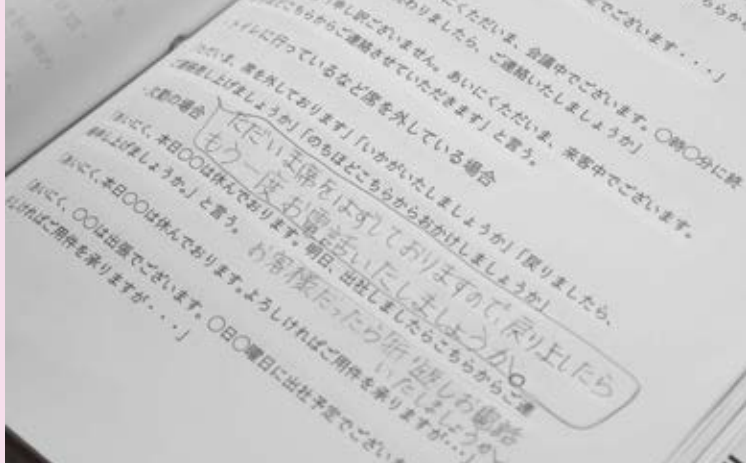 らから
定でございます・・・」
にくただいま、会議中でございます。〇時〇分に終
わりましたら、ご連絡いたしましょうか」
申し訳ございません。あいにくただいま、来客中でございます。
どこちらからご連絡させていただきます」と言う。
トイレに行っているなど席を外している場合
ただいま、席を外しております」「いかがいたしましょうか」「戻りましたら、
ご連絡差し上げましょうか」「のちほどこちらからおかけしましょうか」
ただいま席をはずしておりますので、戻りましたら
もう一度お電話いたしましょうか。
欠勤の場合
「あいにく、本日〇〇は休んでおります。明日、出社しましたらこちらからご連
絡差し上げましょうか。」と言う。
お客様だったら折り返しお電話
いたしましょうか
「あいにく、本日〇〇は休んでおります。よろしければご用件を承りますが・・・」
「あいにく、〇〇は出張でございます。〇日〇曜日に出社予定でござい
しければご用件を承りますが・・・」